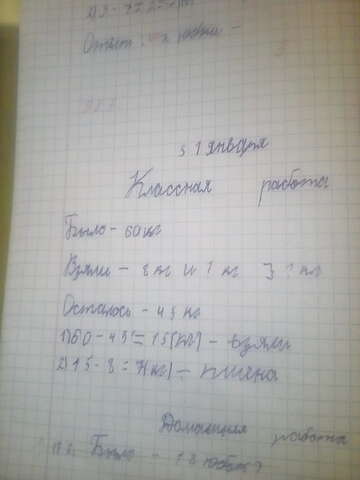 Ответ:
31 января
Классная работа
Было - 60 кг
Взяли - 8 кг и ? кг } ? кг
Осталось - 45 кг
1) 60 - 45 = 15 (кг) - взяли
2) 15 - 8 = 7 (кг) - пшена
Домашняя работа
Было - 18